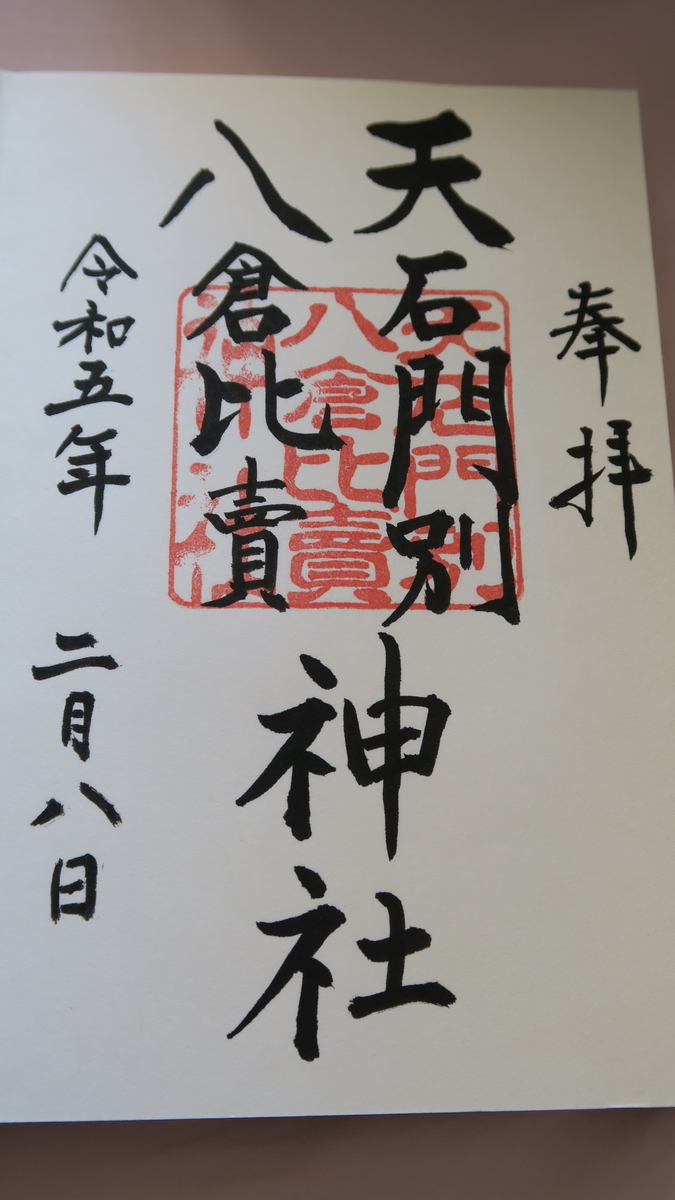 奉拝
天石門別
八倉比賣
神社
令和五年 二月八日
天石門別
八倉比賣